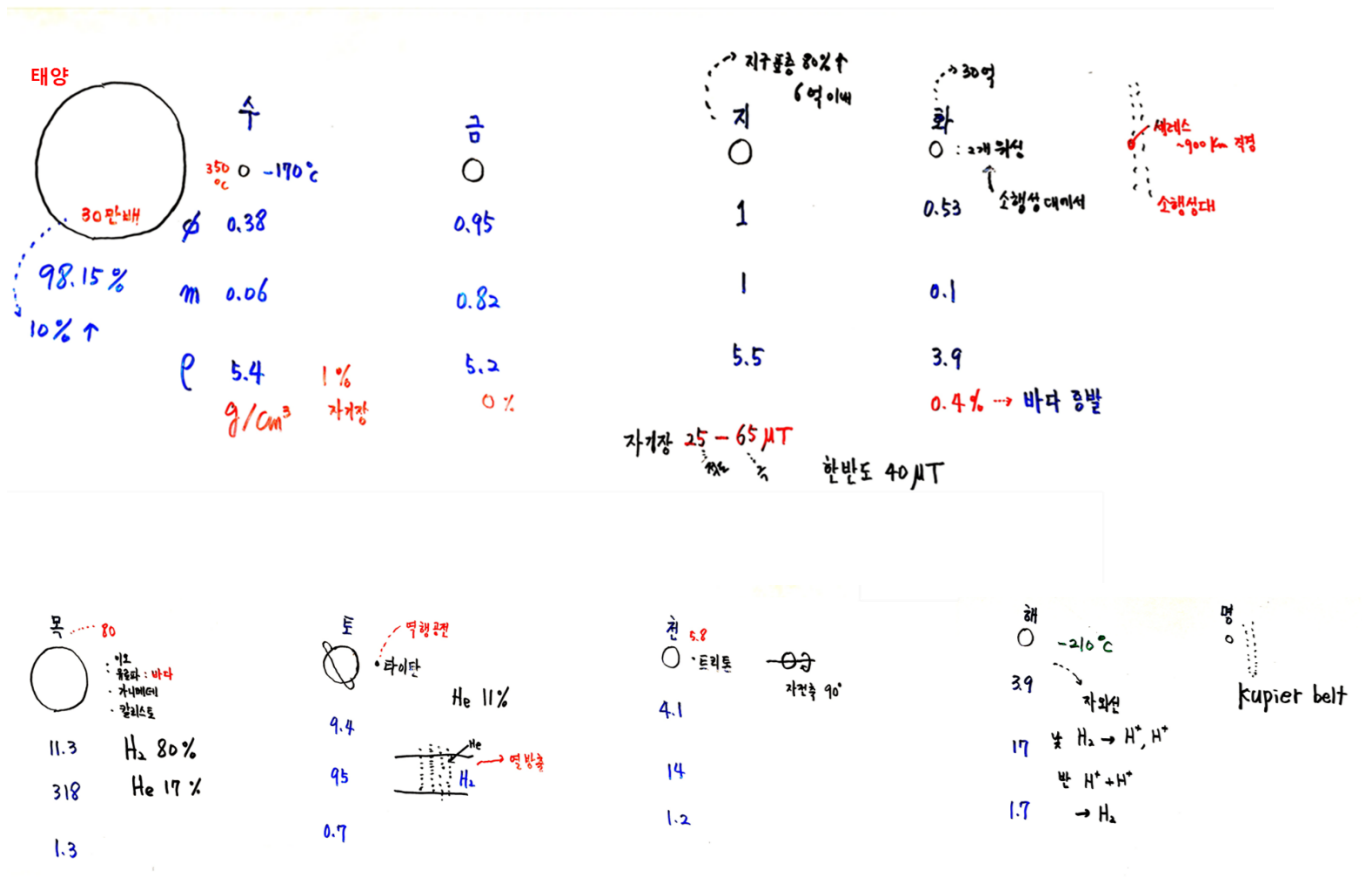 태양
30만배
98.15%
10% ↑
수
350℃ -170℃
ϕ 0.38
m 0.06
ρ 5.4 1%
g/cm³ 자기장
금
0.95
0.82
5.2
0%
지구표층 80%↑
6억이내
지
1
1
5.5
자기장 25 - 65 μT
적도 극
한반도 40μT
30억
화
: 2개 위성
소행성대에서
0.53
0.1
3.9
0.4% → 바다 증발
세레스
~900km 직경
소행성대
목 80
· 이오
· 유로파 : 바다
· 가니메데
· 칼리스토
11.3 H₂ 80%
318 He 17%
1.3
토
역행공전
타이탄
He 11%
9.4
95
0.7
He
H₂
열방출
천 5.8
· 트리톤
자전축 90°
4.1
14
1.2
해
-210℃
3.9
자외선
17 낮 H₂ → H⁺, H⁺
반 H⁺ + H⁺
1.7 → H₂
명
kupier belt